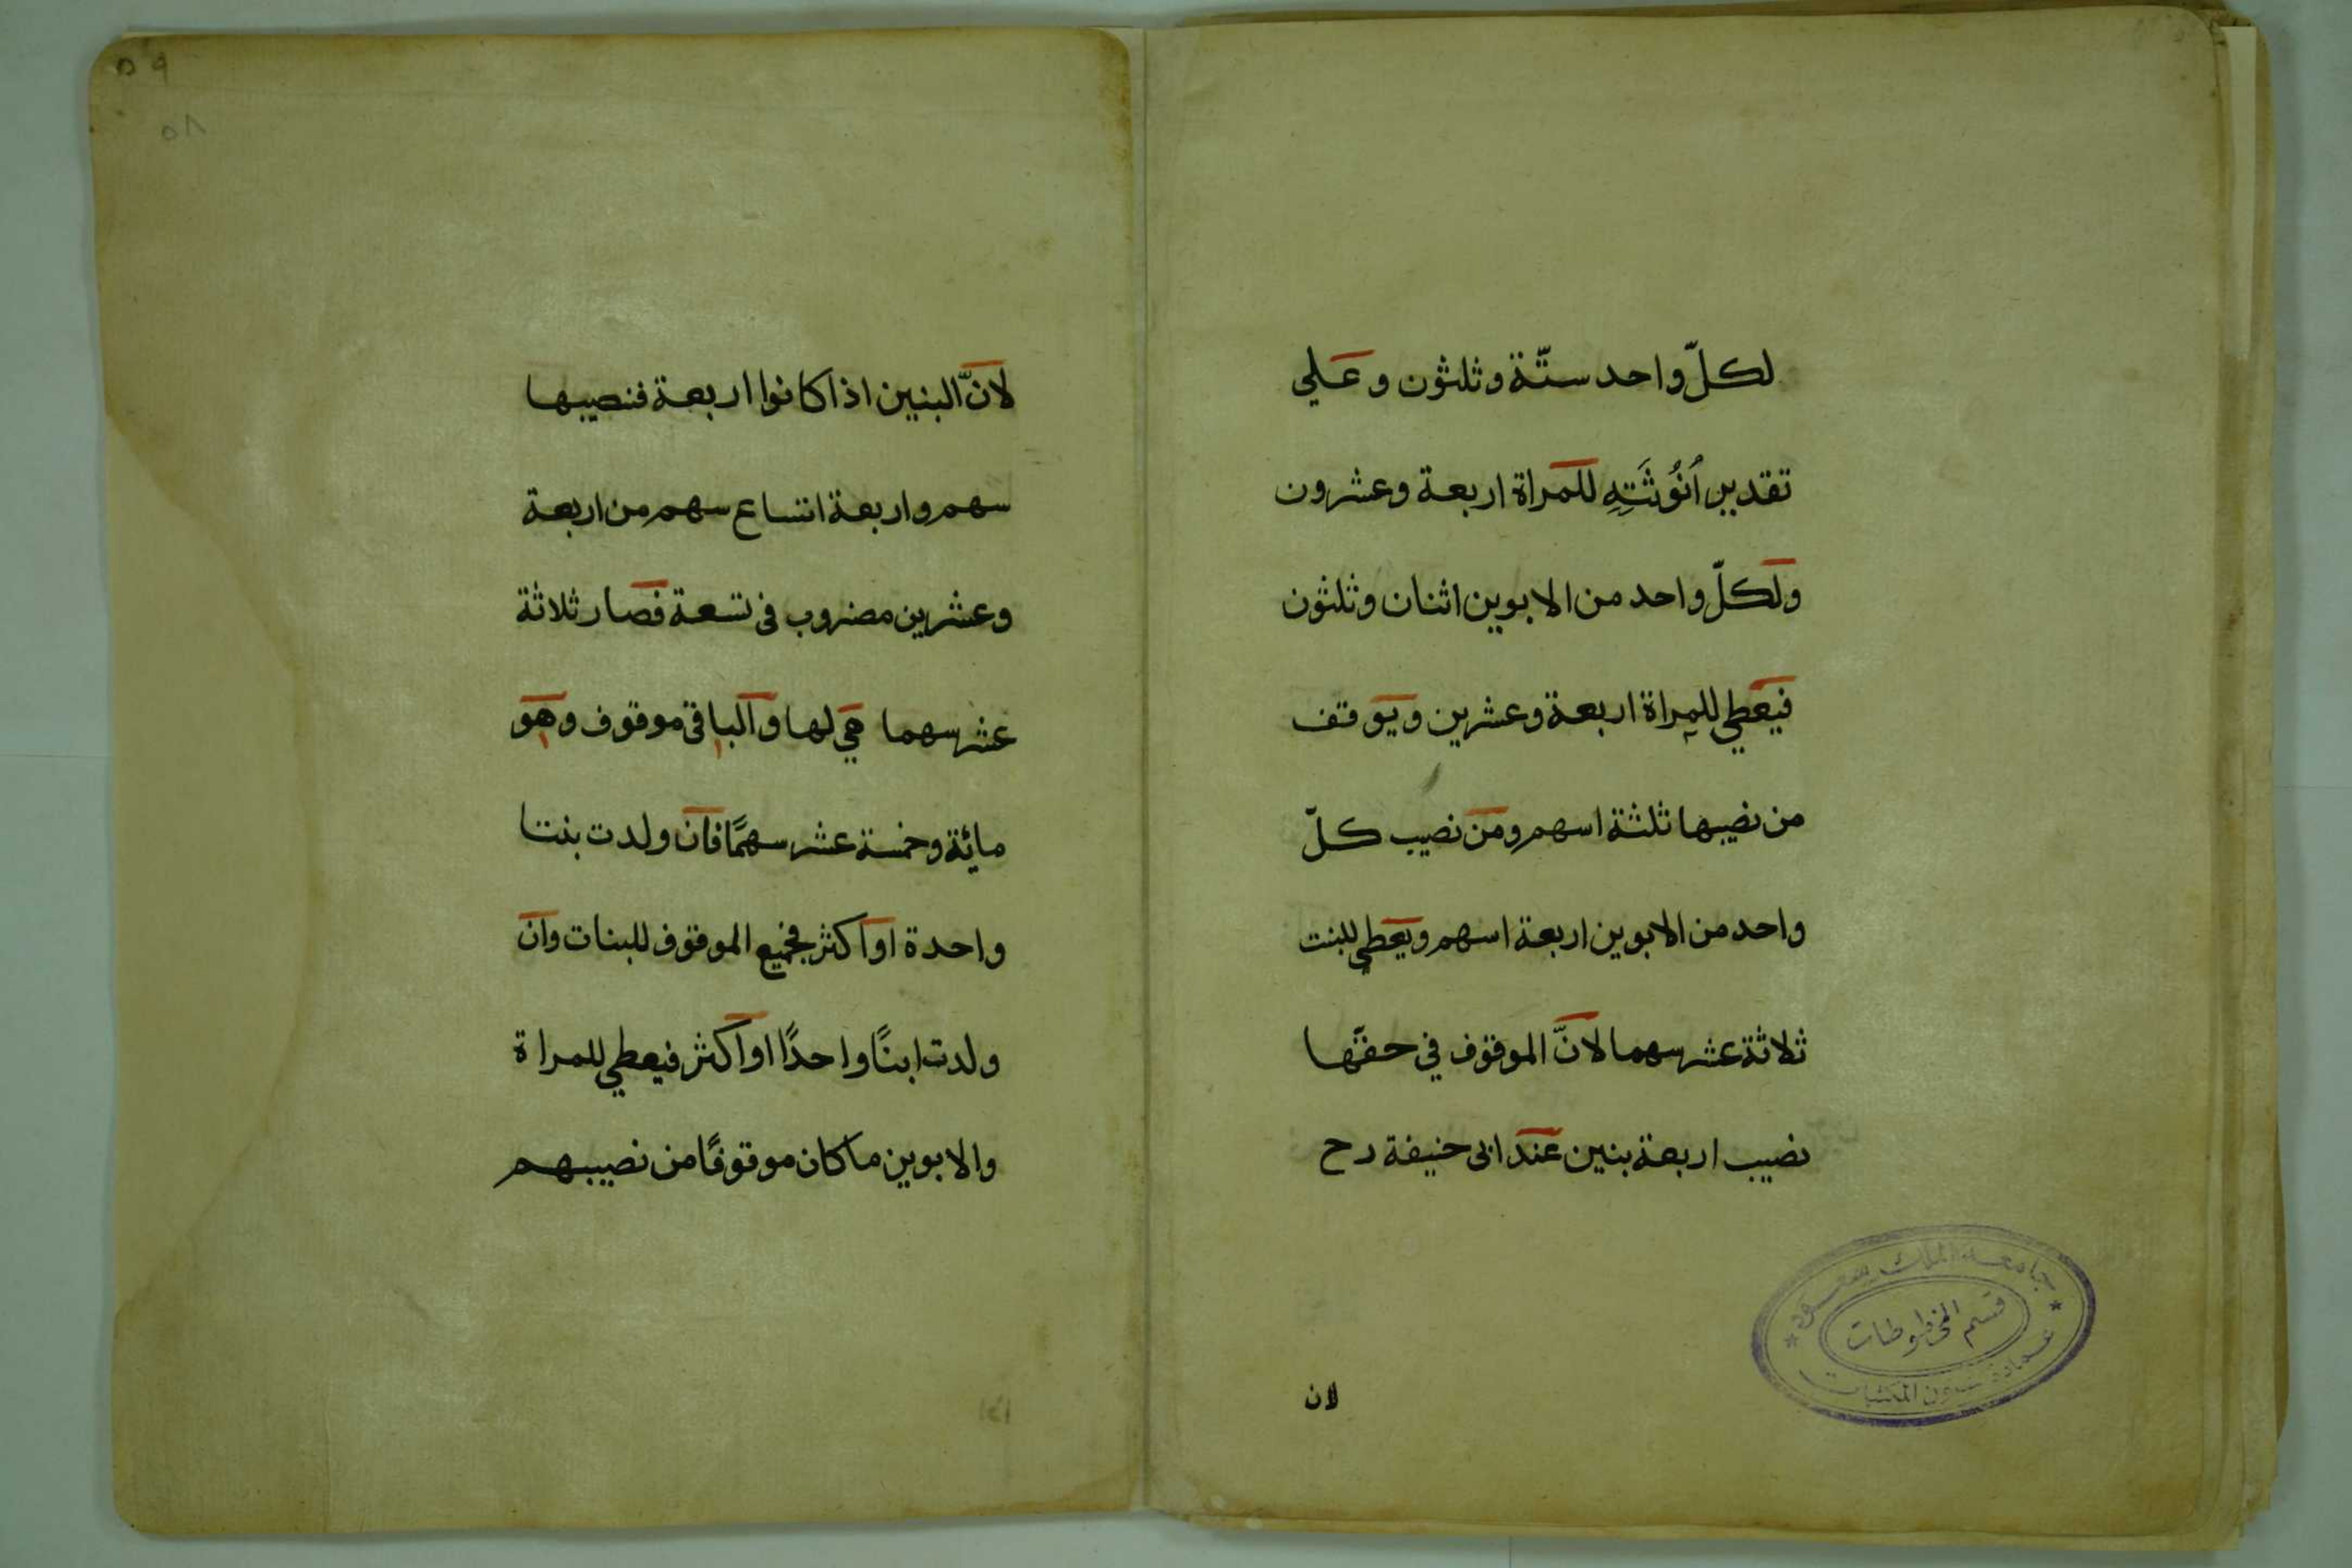 لكلّ واحد ستّة وثلثون وعلي
تقدير اُنُوثَتِهِ للمراة اربعة وعشرون
ولكلّ واحد من الابوين اثنان وثلثون
فيعطي للمراة اربعة وعشرين ويوقف
من نصيبها ثلثة اسهم ومن نصيب كلّ
واحد من الابوين اربعة اسهم ويعطي للبنت
ثلاثة عشر سهما لانّ الموقوف في حقّها
نصيب اربعة بنين عند ابى حنيفة رح
لان
جامعة الملك سعود
قسم المخطوطات
عمادة شئون المكتبات
٥٩
٥٨
لانّ البنين اذا كانوا اربعة فنصيبها
سهم واربعة اتساع سهم من اربعة
وعشرين مضروب فى تسعة فصار ثلاثة
عشر سهما هي لها والباقى موقوف وهو
مائة وخمسة عشر سهمًا فان ولدت بنتا
واحدة او اكثر فجميع الموقوف للبنات وان
ولدت ابنًا واحدًا او اكثر فيعطي للمراة
والابوين ما كان موقوفًا من نصيبهم